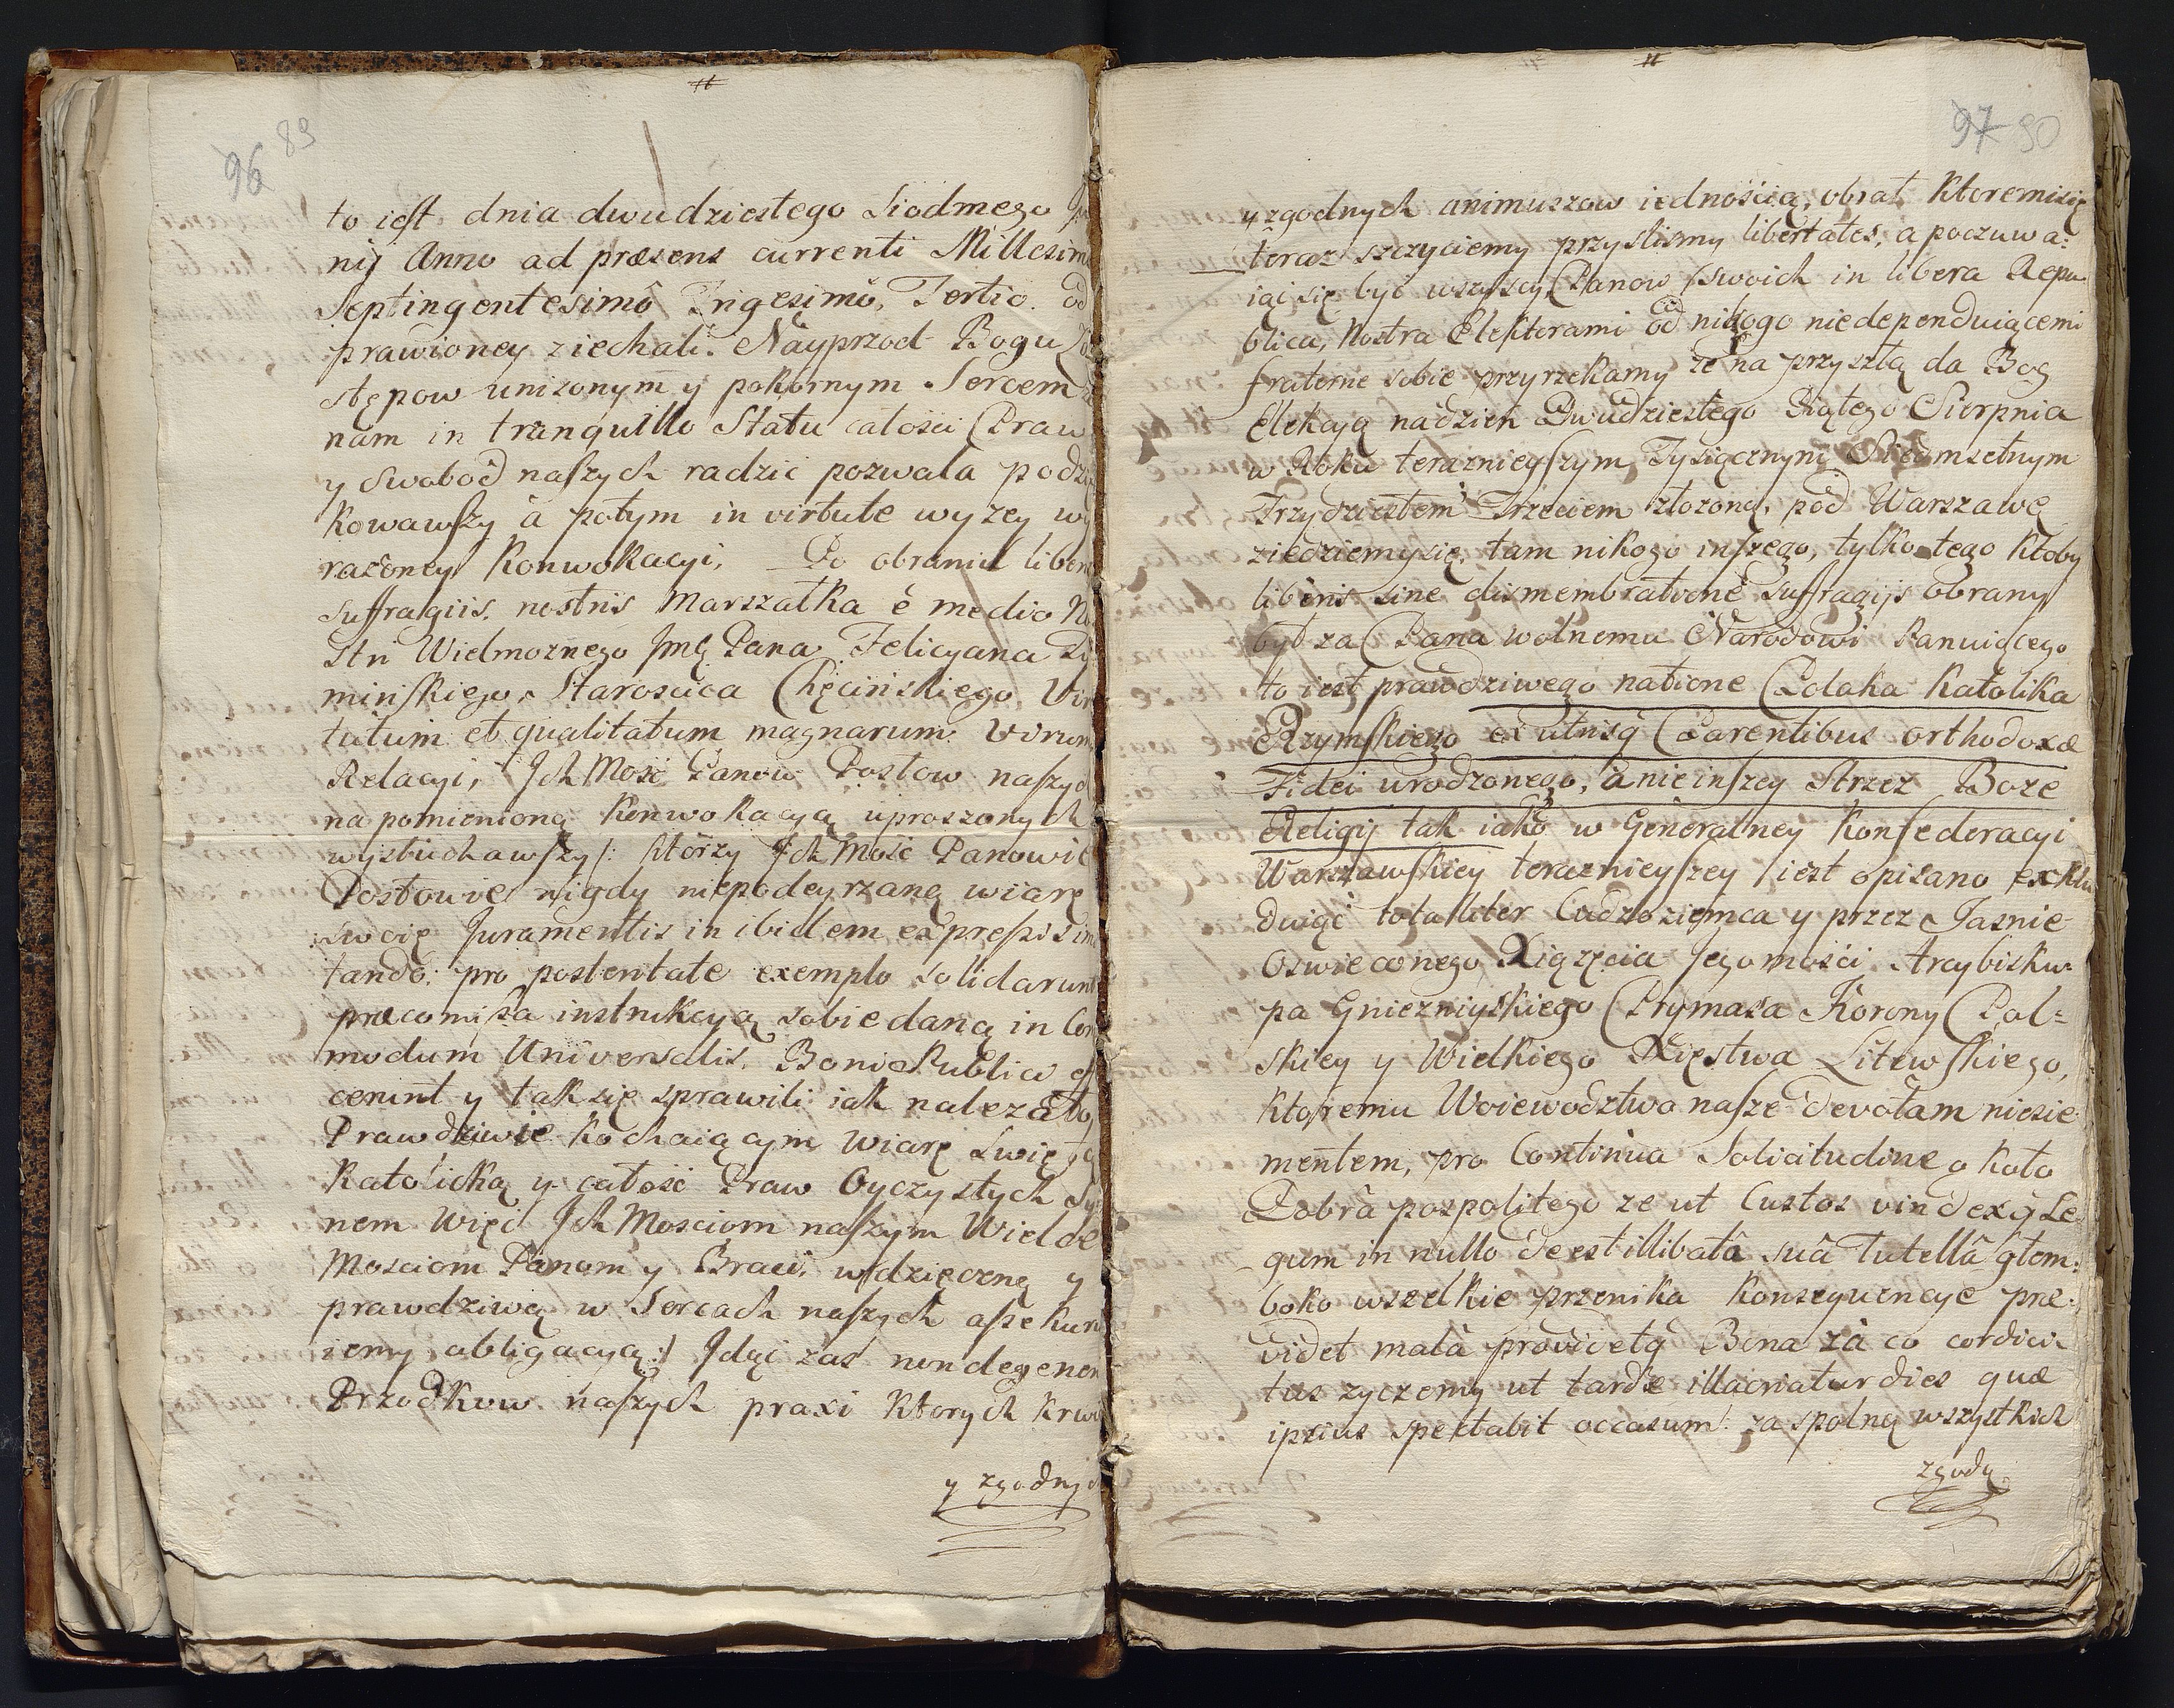 96 89
to iest dnia dwudziestego Siodmego Ju
nij Anno ad præsens currenti Millesimo
Septingentesimô Trigesimô, Tertio od
prawioney ziechali. Nayprzod Bogu
stępow unizonym y pokornym Sercem
nam in tranquillo Statu całosci Praw
y Swobod naszych radzić pozwala podzię
kowawszy à potym in virtute wyzey wy
razoney Konwokacyi, Po obraniu liberis
suffragiis nostris Marszałka è medio No
stri Wielmoznego Jmę Pana Felicyana
mińskiego Starościca Chęcińskiego Vir
tutum et qualitatum magnarum Virum
Relacyi, Ich Mość Panow Posłow naszych
na pomienioną Konwokacyą uproszonych
wysłuchawszy /: ktorzy Ich Mość Panowie
Posłowie nigdy niepodeyrzaną wiarę
swoię Juramentis in ibidem expressis
tando: pro posteritate exemplo solidarunt
præcomissa instrukcyą sobie daną in Com
modum Universalis Boni Publici eff
cerunt y tak się sprawili iak nalezało
Prawdziwie kochaiącym Wiarę Swiętą
Katolicką y całość Praw Oyczystych
nem Więc Ich Mosciom naszym Wielce
Mosciom Panom y Braci, wdzięczną y
prawdziwą w Sercach naszych assekuru
iemy obligacyą :/ Idąc zas non degeneri
Przodkow naszych praxi Ktorych krwią
y zgodnych
97 90
y zgodnych animuszow iednością, obrał, Ktoremi się
teraz szczyciemy przyslismy libertates, a poczuwa:
iąc się być wszyscy Panow swoich in libera Repu
blica, Nostra Elektorami od nikogo niedependuiącemi
fraterne sobie przyrzekamy że na przyszłą da Bog
Elekcyą nadzien Dwudziestego Piątego Sierpnia
w Roku teraznieyszym Tysiącznym Siedmsetnym
Trzydziestem Trzeciem złozoną, pod Warszawę
ziedziemy się, tam nikogo inszego, tylko tego ktoby
liberis sine dismembratione suffragijs obrany
był za Pana wolnemu Narodowi Panuiącego
to iest prawdziwego natione Polaka Katolika
Rzymskiego ex utrisq Parentibus orthodoxæ
Fidei urodzonego, a nie inszey Strzez Boze
Religij tak iako w Generalney Konfederacyi
Warszawskiey teraznieyszey iest opisano exklu
duiąc totaliter Cudzoziemca y przez Jasnie
Oswieconego Xiązęcia Jegomości Arcybisku
pa Gnieznıyskiego Prymasa Korony Pol=
skiey y Wielkiego Xięstwa Litewskiego,
ktoremu Woiewodztwo nasze devotam niesie
mentem, pro Continua Solicitudine o koło
Dobra pospolitego ze ut Custos vindexq Le
gum in nullo deest illibatâ suâ Tutellâ głem:
boko wszelkie przenika konsequencye præ:
videt mala providetq Bona za co cordici
tus zyczemy ut tarde illacriatur dies quæ
ipsius spektabit occasum: za spolną wszystkich
zgodą